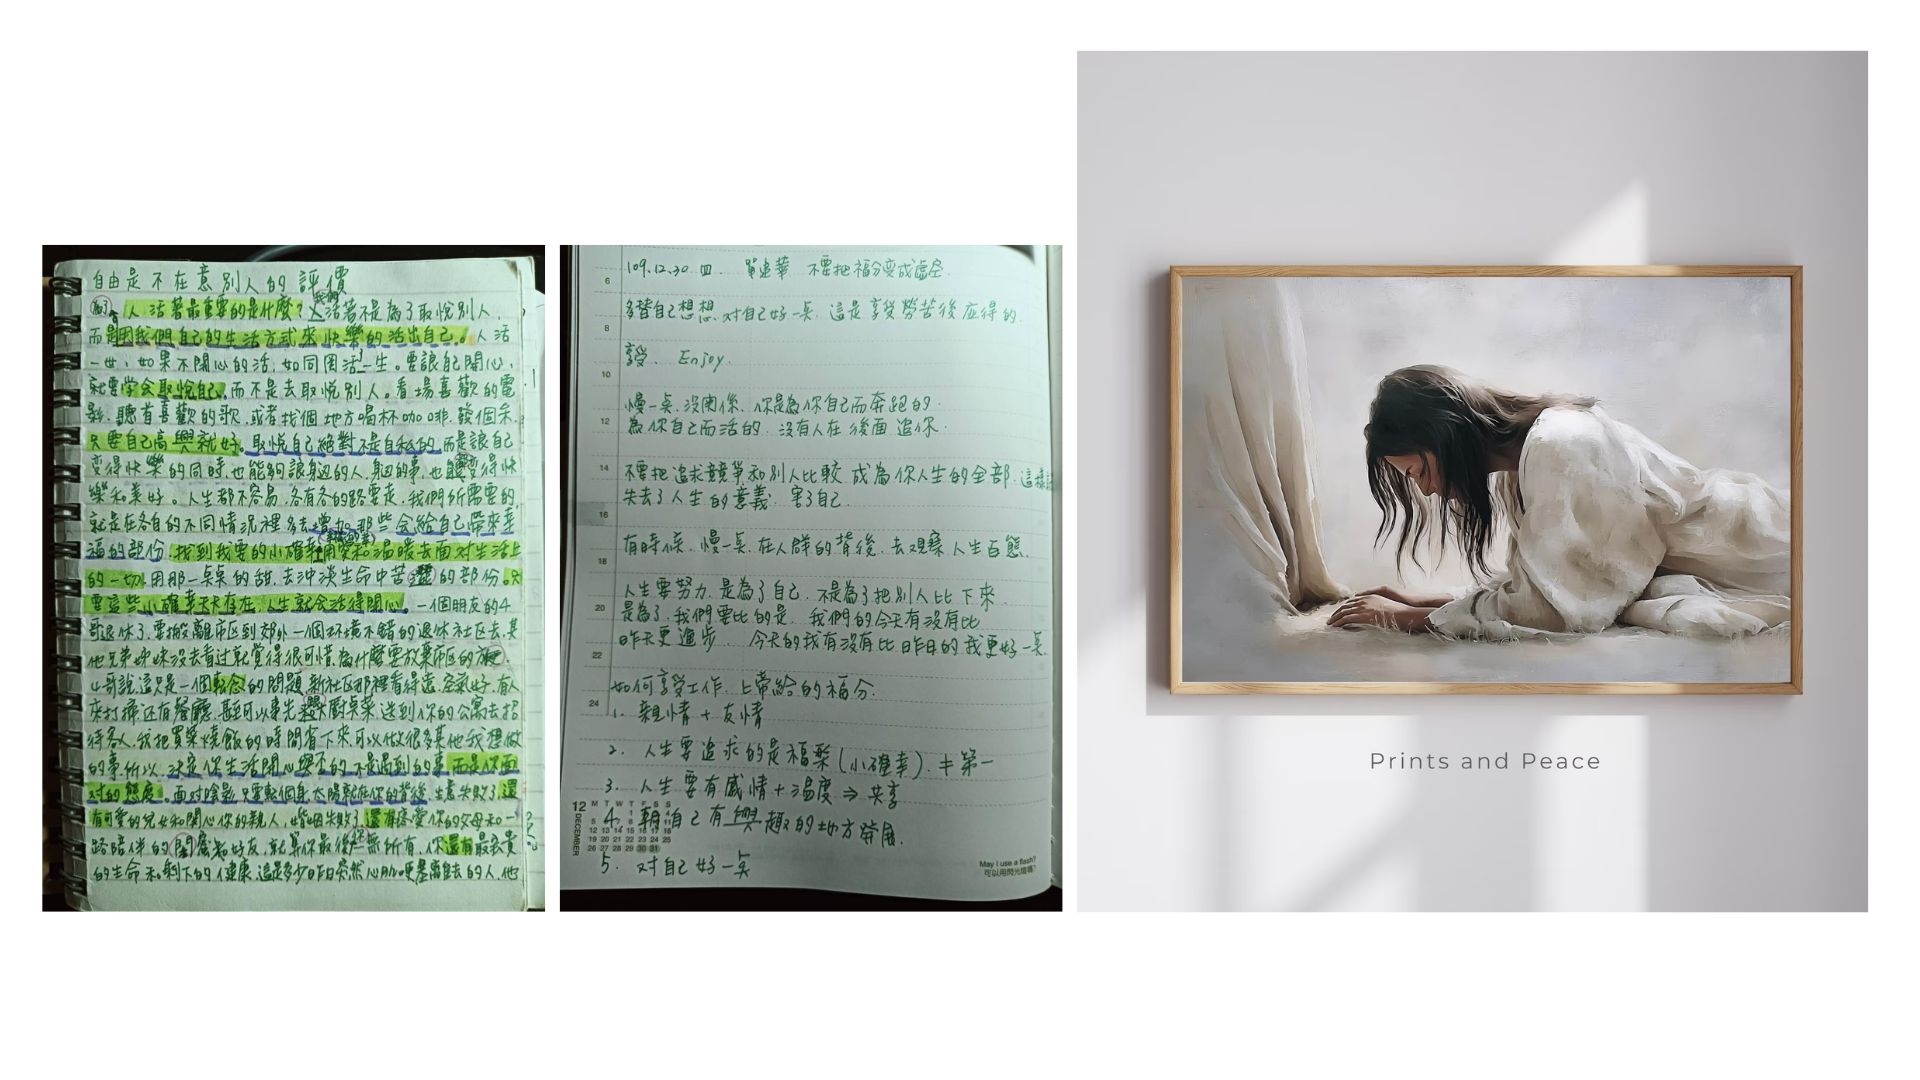 自由是不在意別人的評價
人活著最重要的是什麼?我們活著不是為了取悅別人,
而是因我們自己的生活方式來快樂的活出自己。人活
一世,如果不開心的活,如同困活一生。要讓自己開心,
就要学会取悅自己,而不是去取悅別人。看場喜歡的電
影,聽首喜歡的歌,或者找個地方喝杯咖啡,發個呆,
只要自己高興就好。取悅自己絕對不是自私的,而是讓自己
變得快樂的同時,也能夠讓身边的人,身边的事,也變得快
樂和美好。人生都不容易,各有各的路要走,我們所需要的,
就是在各自的不同情況裡多去增加那些会給自己帶來幸
福的部份,找到我要的小確幸用愛和温暖去面对生活上
的一切,用那一桌桌的甜,去沖淡生命中苦澀的部份。只
要這些小確幸天天存在,人生就会活得開心。一個朋友的4
哥退休了,要搬離市区到郊外一個环境不錯的退休社区去,其
他兄弟姊妹没去看过就覚得很可惜,為什麼要放棄市区的
4哥說,這只是一個転念的問題,新社区那裡看得遠,空氣好,有人
來打掃还有餐廳,甚至可以事先 廚桌菜,送到你的公寓去招
待客人,我把買菜燒飯的時間省下來可以做很多其他我想做
的事,所以,決定你生活開心與否的,不是遇到的事,而是你面
対的態度。面对陰影,只要転個身,太陽就在你的背後,生意失敗了,還
有可愛的兒女和関心你的親人,婚姻失敗了,還有疼愛你的父母和一
路陪伴的閨蜜和好友,就算你最後一無所有,你還有最宝貴
的生命和剩下的健康,這是多少昨日突然心肌梗塞離去的人,他
109.12.30 四. 單追華 不要把福分变成虛空.
多替自己想想,对自己好一桌. 這是享受勞苦後应得的.
享受. Enjoy.
慢一桌,没関係,你是為你自己而奔跑的.
為你自己而活的. 没有人在後面追你.
不要把追求競爭和別人比較成為你人生的全部.這樣
失去了人生的意義. 害了自己.
有時候,慢一桌,在人群的背後,去观察人生百態.
人生要努力,是為了自己,不是為了把別人比下來
是為了,我們要比的是,我們的今天有没有比
昨天更進步. 今天的我有没有比昨日的我更好一桌.
如何享受工作,上帝給的福分.
1. 親情+友情
2. 人生要追求的是福樂(小確幸).#第一
3. 人生要有感情+温度⇒共享
4. 朝自己有興趣的地方発展.
5. 対自己好一桌
6
8
10
12
14
16
18
20
22
24
12 DECEMBER
M T W T F S S
1 2 3 4
5 6 7 8 9 10 11
12 13 14 15 16 17 18
19 20 21 22 23 24 25
26 27 28 29 30 31
May I use a flash?
可以用閃光燈嗎?
Prints and Peace